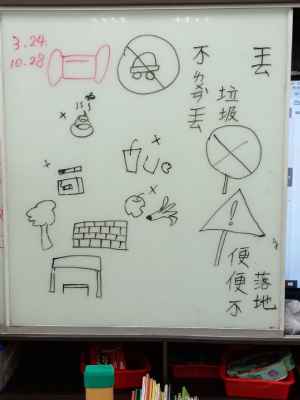 3.24.
10.28
丟
垃圾
不
丟
便便不
落地